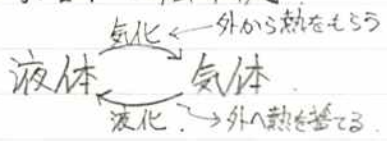 気化 ← 外から熱をもらう
液体 気体
液化 → 外へ熱を捨てる